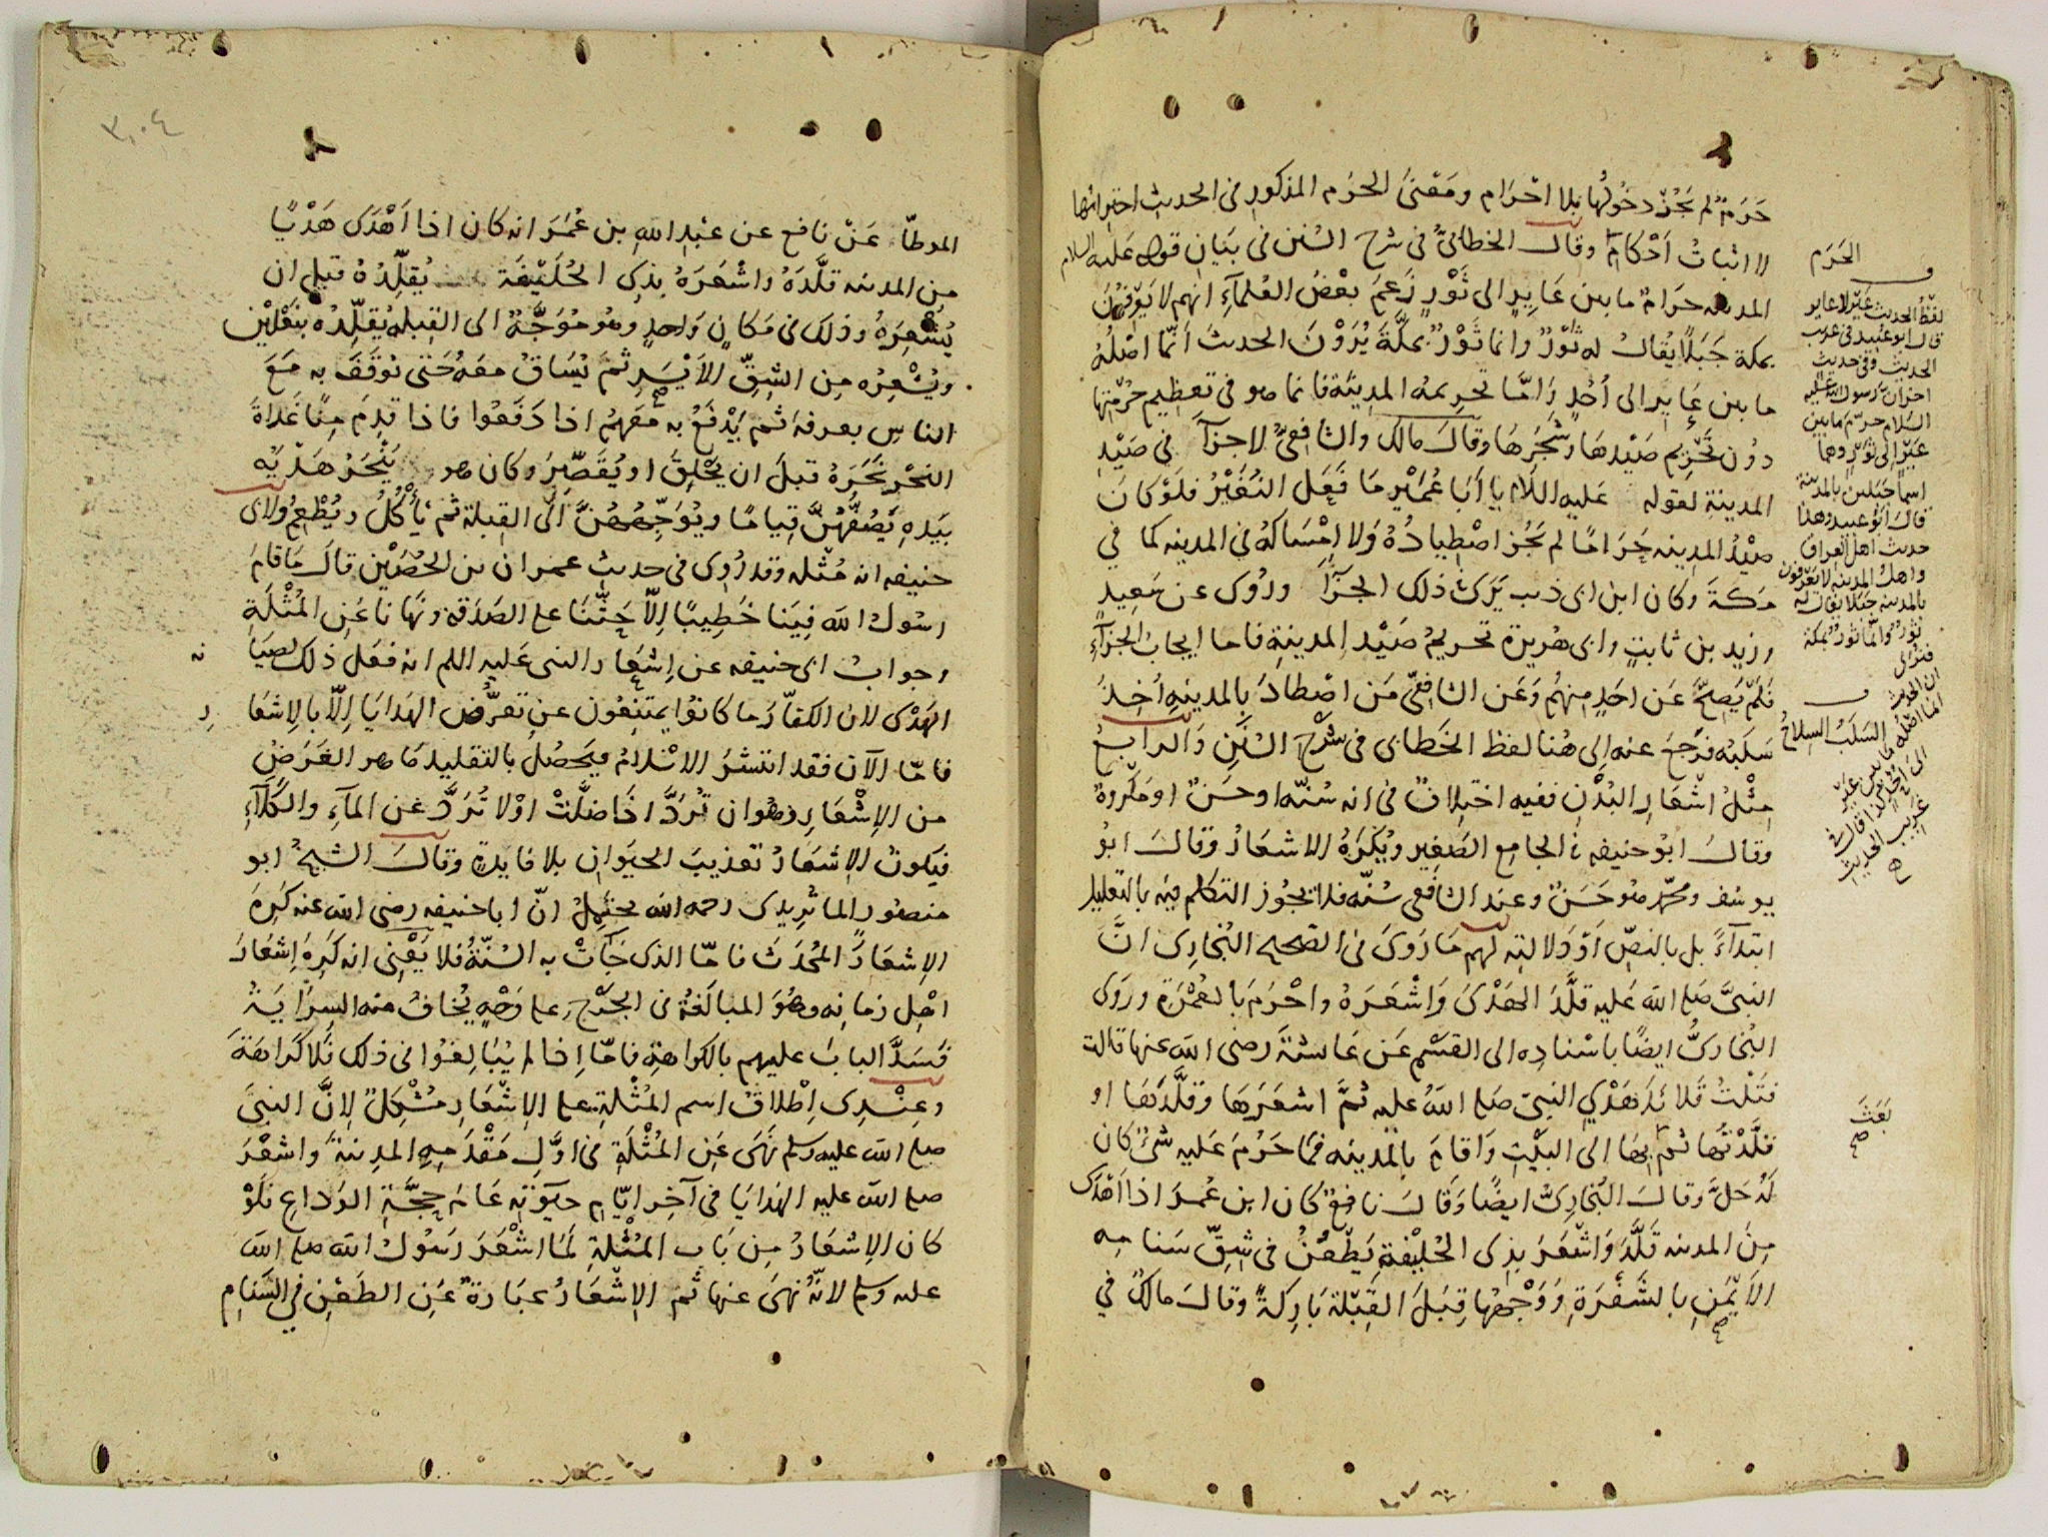 حَرَمٌ لم يَجُزْ دخُولُها بلا احْرَام ومَعْنىَ الحَرَم المذكورِ في الحديثِ احترامُها
لا اثباتُ اَحْكامٍ وقال الخطابيُّ في شرح السُنن في بَيَانِ قوله عَليه السلام
المدينه حرَامٌ ما بين عَايِرٍ الى ثَوْرٍ زَعمَ بعْضُ العُلمآءِ انهم لا يَعْرِفُونَ
بمكة جَبَلاً يُقالُ له ثَوْرٌ وانما ثَوْرٌ بمكَّةَ يُرَوْنَ الحديثَ انّما اصْلُهُ
ما بين عَايِرٍ الى اُحُدٍ وَامَّا تحريمهُ المدِينَة فانما هو في تعظِيم حُرْمَتِها
دُون تحْرِيم صَيْدِهَا وشَجَرِهَا وقالَ مالك والشافِعيُّ لا جزآءَ في صَيْدِ
المدينةِ لقوله عَليه السلام يا اَبَا عُمَيْرٍ ما فَعَل النُغَيْرُ فلَوْ كانَ
صَيْدُ المدِينه حَرَامًا لم يَجُز اصْطِيادُهُ وَلا اِمْسَاكهُ في المدِينه كما في
مكةَ وكان ابن ابى ذئب يَرَىَ ذلك الجزآءَ ورُوى عن سَعِيدٍ
وزيد بن ثابتٍ وابى هُريرة تحريمُ صَيْدِ المدينةِ فاما ايجابُ الجزآءِ
فلَمْ يَصِحَّ عَن احَدٍ منهُم وَعَن الشافِعيّ مَن اصْطادَ بالمدينهِ اُخِذَ
سَلبُه فرَجعَ عنه الى هُنا لفظ الخَطابى في شَرْح السُنَنِ وَالرابعُ
مِثْلُ اشْعَارِ البُدْنِ ففيه اختلافٌ في انه سُنّه او حسَنٌ او مَكرُوهٌ
وقالَ ابوُ حنيفه في الجامع الصَغير ويُكرَهُ الاشعارُ وقالَ ابوُ
يوسُف ومحمّد هو حَسَنٌ وعند الشافعى سُنّه فلا تجُوز التكلم فيه بالتعليل
ابتدآءً بل بالنصِّ اَوْ دَلالتِه لهم مَا رَوَىَ في الصَحيح البُخارِى انَّ
النبىَّ صَلى اللّه عَليه قلَّدَ الهَدْىَ وَاَشْعَرَهُ واحْرَمَ بالعُمْرَةِ ورَوَى
البُخارِىُّ ايضًا باسْنادِه الى القسْم عَن عَائشةَ رضى اللّه عنها قالت
فتَلْتُ قَلائدَ هَدْىِ النبى صَلى اللّهُ عليه ثمَّ اشعَرَها وقلَّدَهَا او
قلَّدْتُها ثم بها الى البَيْتِ وَاقامَ بالمدِينه فمَا حَرُمَ عَليه شئٌ كان
لهُ حَلٌّ وقالَ البُخارِىُّ ايضًا وَقالَ نافعٌ كان ابن عُمَر اذا اَهْدَى
مِنَ المدينه قَلَّدَ وَاَشْعَرَ بذِى الحُلَيْفَةِ يَطْعُنُ في شِقِّ سَنامِه
الاَيْمَنِ بالشَّفْرَةِ وَوَجْهُها قِبَلَ القِبْلة بَارِكةً وقالَ مالكٌ في
الحَرَم
لفظُ الحديث عَيْرٌ لا عاير
قال ابو عُبَيد في غريب
الحديث وفي حديث
آخر ان رسول الله عليه
السلام حرّم ما بين
عَيْرٍ الى ثَوْرٍ وهما
اسما جبلين بالمدينة
قالَ ابو عبيد وهذا
حديث اهل العراق
واهلُ المدينه لا يعرفون
بالمدينه جبلا يقال له
ثورٌ وانّما ثورٌ بمكة
فنرى
ان الحديث
انما اصْله ما بين عَيْرٍ
الى اُحُدٍ كذا قال في
غريب الحديث
السَلَبُ السلاحُ
بَعَثَ
صح
٣٠٤
الموطأ عَنْ نافع عن عَبْدِ اللّهِ بن عُمَرَ انه كان اذا اَهْدَى هَدْيًا
مِن المدينه قلَّدَهُ واشْعَرَهُ بذِى الحُلَيْفَة يُقلِّدُهُ قبل ان
يُشعِرَهُ وذلك في مَكانٍ وَاحدٍ وهُو مُوَجَّهٌ الى القِبله يُقلِّدُه بنَعْلَيْن
ويُشْعِرُه مِن الشِقِّ الاَيْسَرِ ثمَّ يُسَاقُ معَهُ حَتى يُوقَفَ به مَعَ
الناسِ بعرفه ثم يَدْفَعُ به معَهُم اذا دَفَعُوا فاذا قدِمَ مِنًا غَداةَ
النحْرِ نَحَرَهُ قبلَ ان يَحْلِقَ او يُقَصِّرَ وكان هو يَنْحَرُ هَدْيَه
بيَدهِ يَصُفُّهُنَّ قِيامًا ويُوَجِّهُهُنَّ الى القِبلة ثم يَأكُلُ ويُطْعِمُ ولابى
حنيفه انه مُثْله وقد رُوِى في حديث عمران بن الحُصَيْنِ قالَ مَا قامَ
رسُولُ اللّه فِينَا خَطِيبًا اِلاّ حَثَّنَا على الصَدَقة ونَهانا عَنِ المُثْلَةِ
وجوابُ ابى حنيفه عن اِشعَار النبى عَليه السلم انه فعَل ذلك لصيَانه
الهَدْى لان الكفّارَ ما كانوُا يمتنِعُون عن تعَرُّض الهدَايَا اِلاّ بالاِشعَار
فامّا الآن فقد انتشرَ الاسْلامُ ويَحصُلُ بالتقليد مَا هو الغَرَضُ
من الاِشْعَارِ وهُو ان تُرَدَّ اذَا ضَلَّتْ اوْ لا تُرَدَّ عَن المآءِ والكَلآَءِ
فيَكونُ الاِشعَارُ تعْذيبَ الحيَوانِ بلا فايدةٍ وقالَ الشيخُ ابو
منصُور الماتُرِيدى رحمه اللّه يحتمِلُ انّ ابا حنيفه رضى اللّه عنه كَرِهَ
الاِشعَارَ المُحْدَثَ فامّا الذى جَآءَتْ به السُنّةُ فلا يَعْنِى انه كَرِهَ اِشعَارَ
اهْلِ زمانِه وهُوَ المبالَغَةُ في الجَرْحِ على وَجْهٍ يُخافُ منه السِرَايَةُ
فَسَدَّ البابَ عليهم بالكراهةِ فامّا اِذا لم يُبَالِغوُا في ذلك فلا كَرَاهَةَ
وعِنْدِى اِطْلاقُ اسم المُثْلَةِ على الاِشْعَارِ مُشْكِلٌ لاِنَّ النبىَ
صلى اللّه عليه وسلم نَهَى عَنِ المُثْلَةِ في اوَّلِ مَقْدَمِهِ المدِينةَ واشعَرَ
صلى اللّه عليه الهدَايَا في آخِر ايّامِ حيَوٰتِه عَامَ حِجَّةِ الوَدَاعِ فَلَوْ
كان الاِشعَارُ مِن بَابِ المُثْلَةِ لمَا اشْعَرَ رَسُولُ اللّه صلى اللّه
عليه وسلم لانّه نَهىَ عنها ثم الاِشْعَارُ عبَارةٌ عَن الطَعْنِ في السَنَامِ